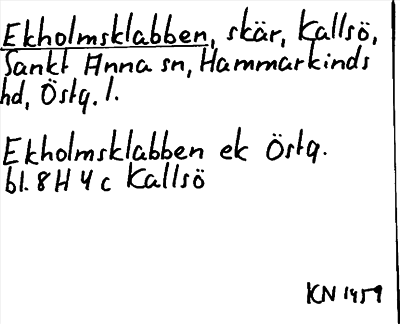 Ekholmsklabben, skär, Kallsö,
Sankt Anna sn, Hammarkinds
hd, Östg. l.
Ekholmsklabben ek Östg.
bl. 8H 4c Kallsö
KN 1959